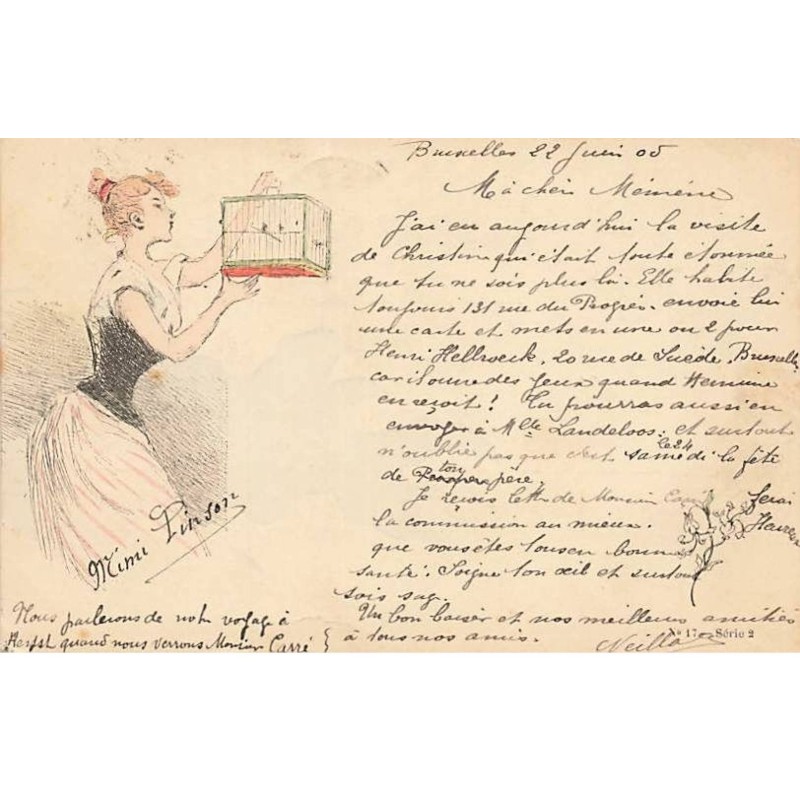 Bruxelles 22 Juin 05
Ma chère Mémène
J'ai eu aujourd'hui la visite
de Christin qui était toute étonnée
que tu ne sois plus là. Elle habite
toujours 131 rue du Progrès. envoie lui
une carte et mets en une ou 2 pour
Henri Hellroeck, 20 rue de Suède, Bruxelles
car il une des jeux quand Hermine
en reçoit! Tu pourras aussi en
envoyer à Mlle Landeloos. et surtout
n'oublie pas que c'est samedi le 24 la fête
de ton père,
Je reçois lettre de Monsieur Carré ferai
la commission au mieux. Heureux
que vous êtes tous en bonne
santé. Soigne ton œil et surtout
sois sage.
Un bon baiser et nos meilleures amitiés
à tous nos amis.
N° 17 - Série 2
Mimi Pinson
Nous parlerons de notre voyage à
Herfst quand nous verrons Monsieur Carré